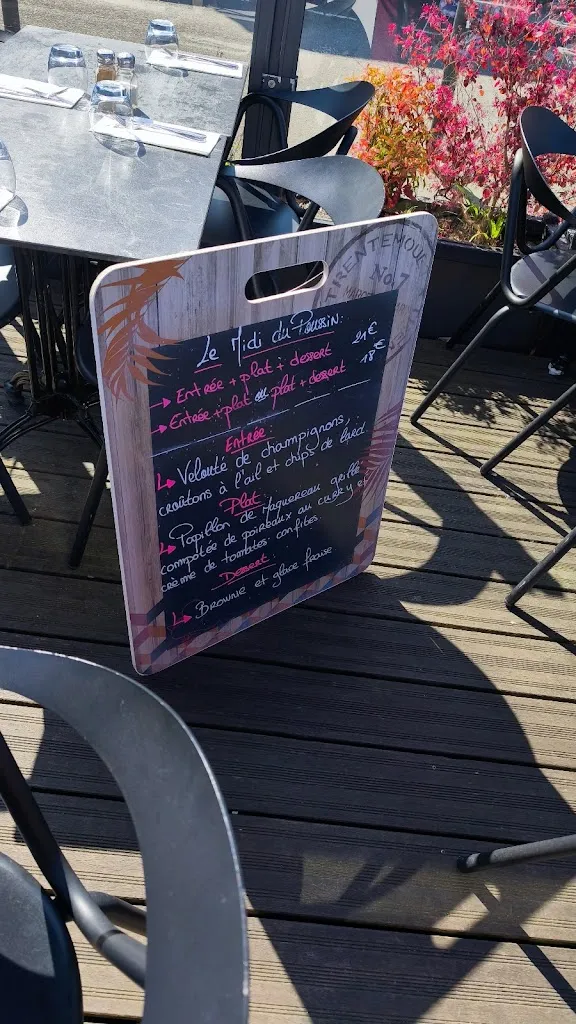 TRENTEMOULT
No 7
Le Midi du Poussin:
→ Entrée + plat + dessert 21€
→ Entrée + plat ou plat + dessert 18€
Entrée:
↳ Velouté de champignons,
croûtons à l'ail et chips de lard
Plat:
↳ Papillon de Maquereau grillé
compotée de poireaux au curry et
crème de tomates confites.
Dessert:
↳ Brownie et glace fraise